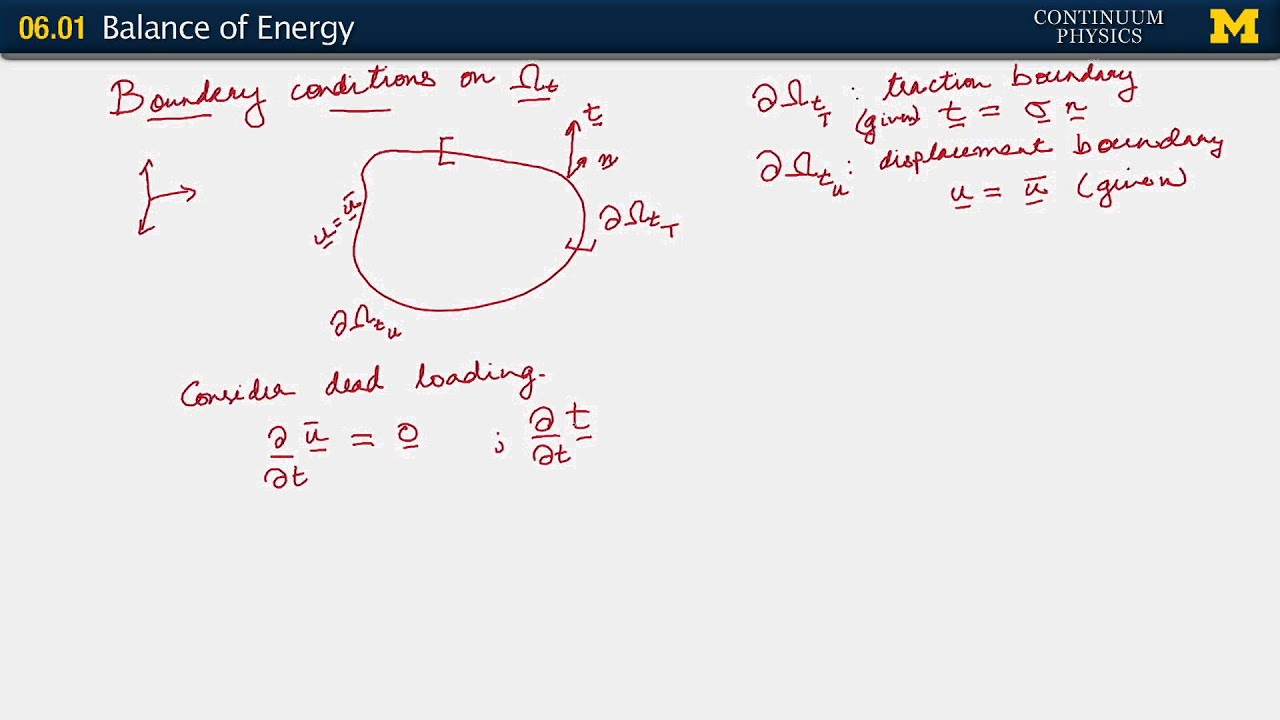 06.01 Balance of Energy
CONTINUUM
PHYSICS
M
Boundary conditions on Ωt
∂ΩtT : traction boundary
(given) t = σ n
∂Ωtu : displacement boundary
u = ū (given)
t
n
u = ū
∂ΩtT
∂Ωtu
Consider dead loading.
∂/∂t ū = 0 ; ∂/∂t t